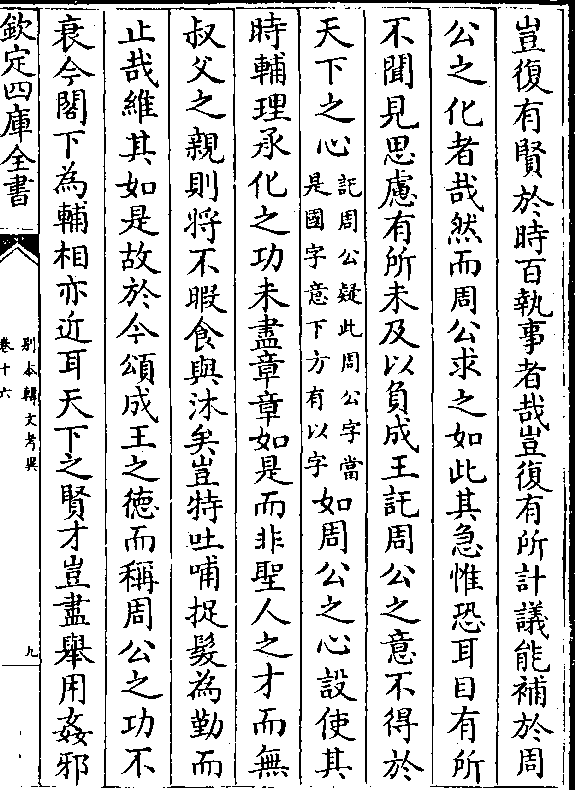 豈復有賢於時百執事者哉豈復有所計議能補於周
公之化者哉然而周公求之如此其急惟恐耳目有所
不聞見思慮有所未及以負成王託周公之意不得於
天下之心託周公疑此周公字當是國字意下方有以字如周公之心設使其
時輔理承化之功未盡章章如是而非聖人之才而無
叔父之親則將不暇食與沐矣豈特吐哺捉髮為勤而
止哉維其如是故於今頌成王之德而稱周公之功不
衰今閣下為輔相亦近耳天下之賢才豈盡舉用姦邪
欽定四庫全書
別本韓文考異
卷十六
九